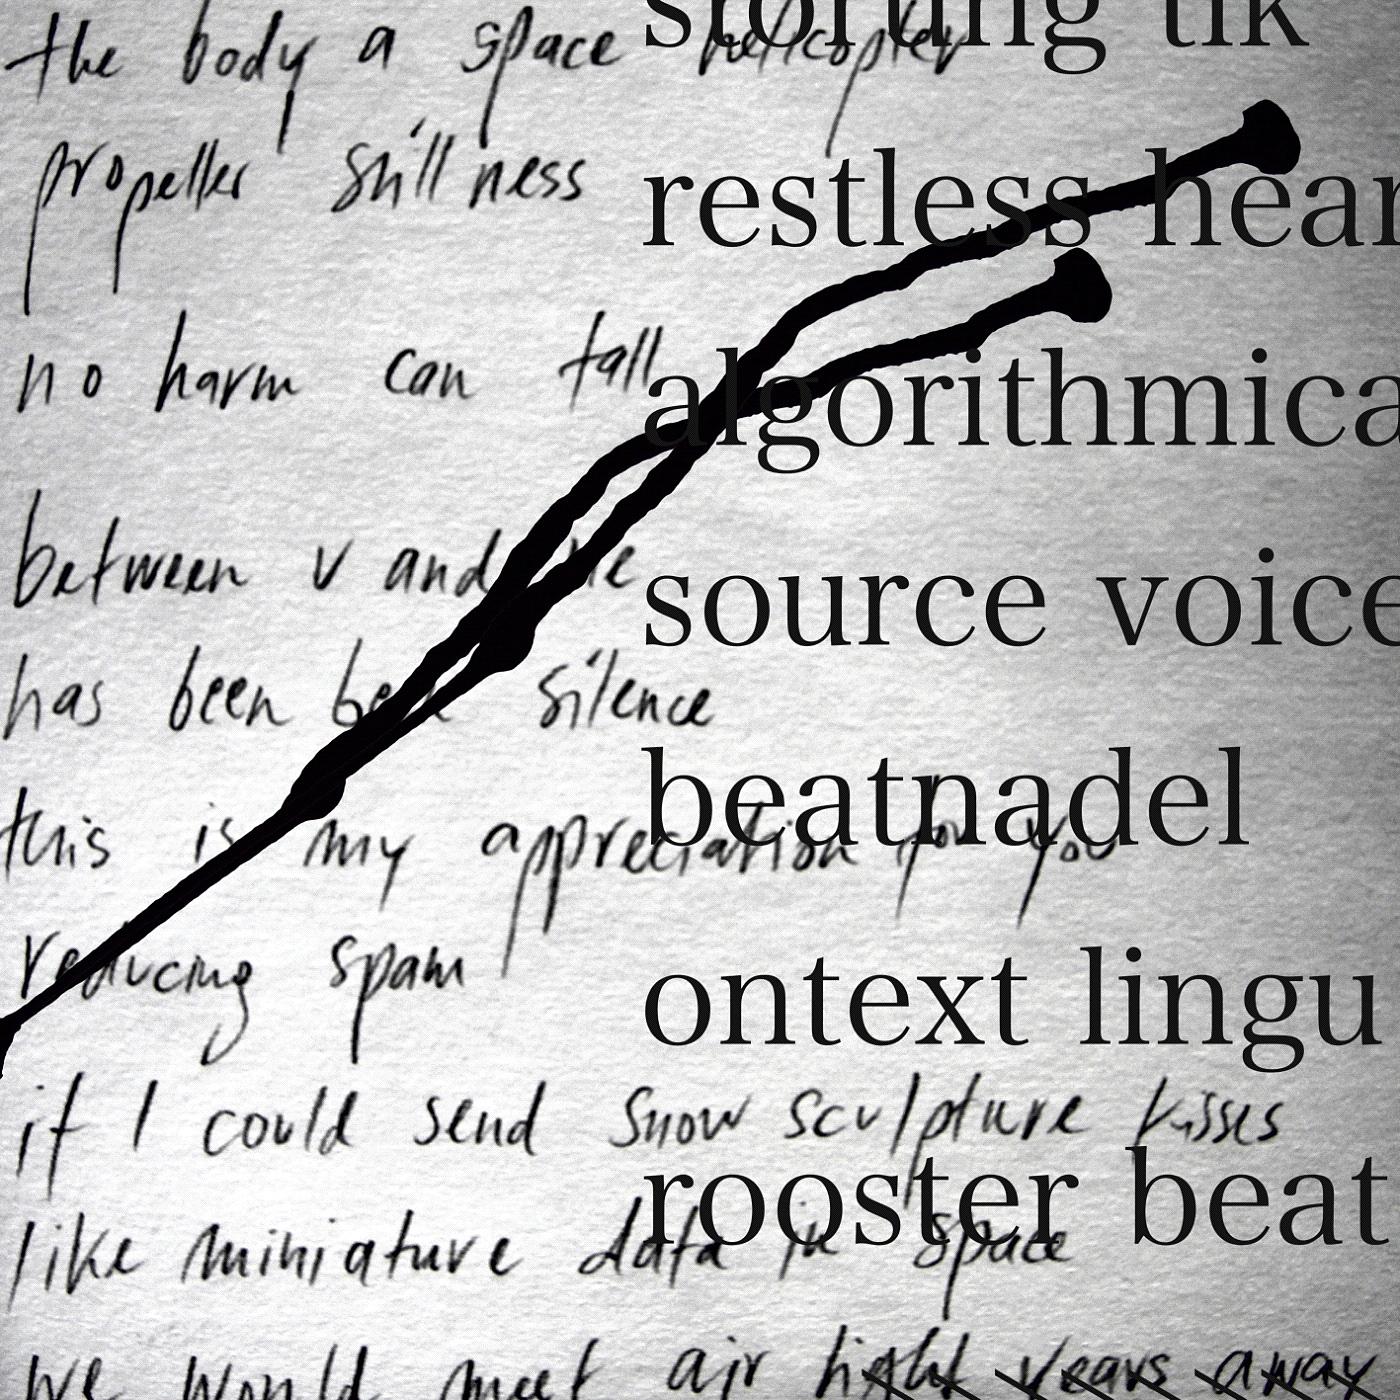 the body a space helicopter
propeller stillness
no harm can fall
between v and me
has been
silence
this is my appreciation for you
reducing spam
if I could send snow sculpture kisses
like miniature data in space
we would meet air light years away
restless hear
algorithmica
source voice
beatnadel
ontext lingu
rooster beat